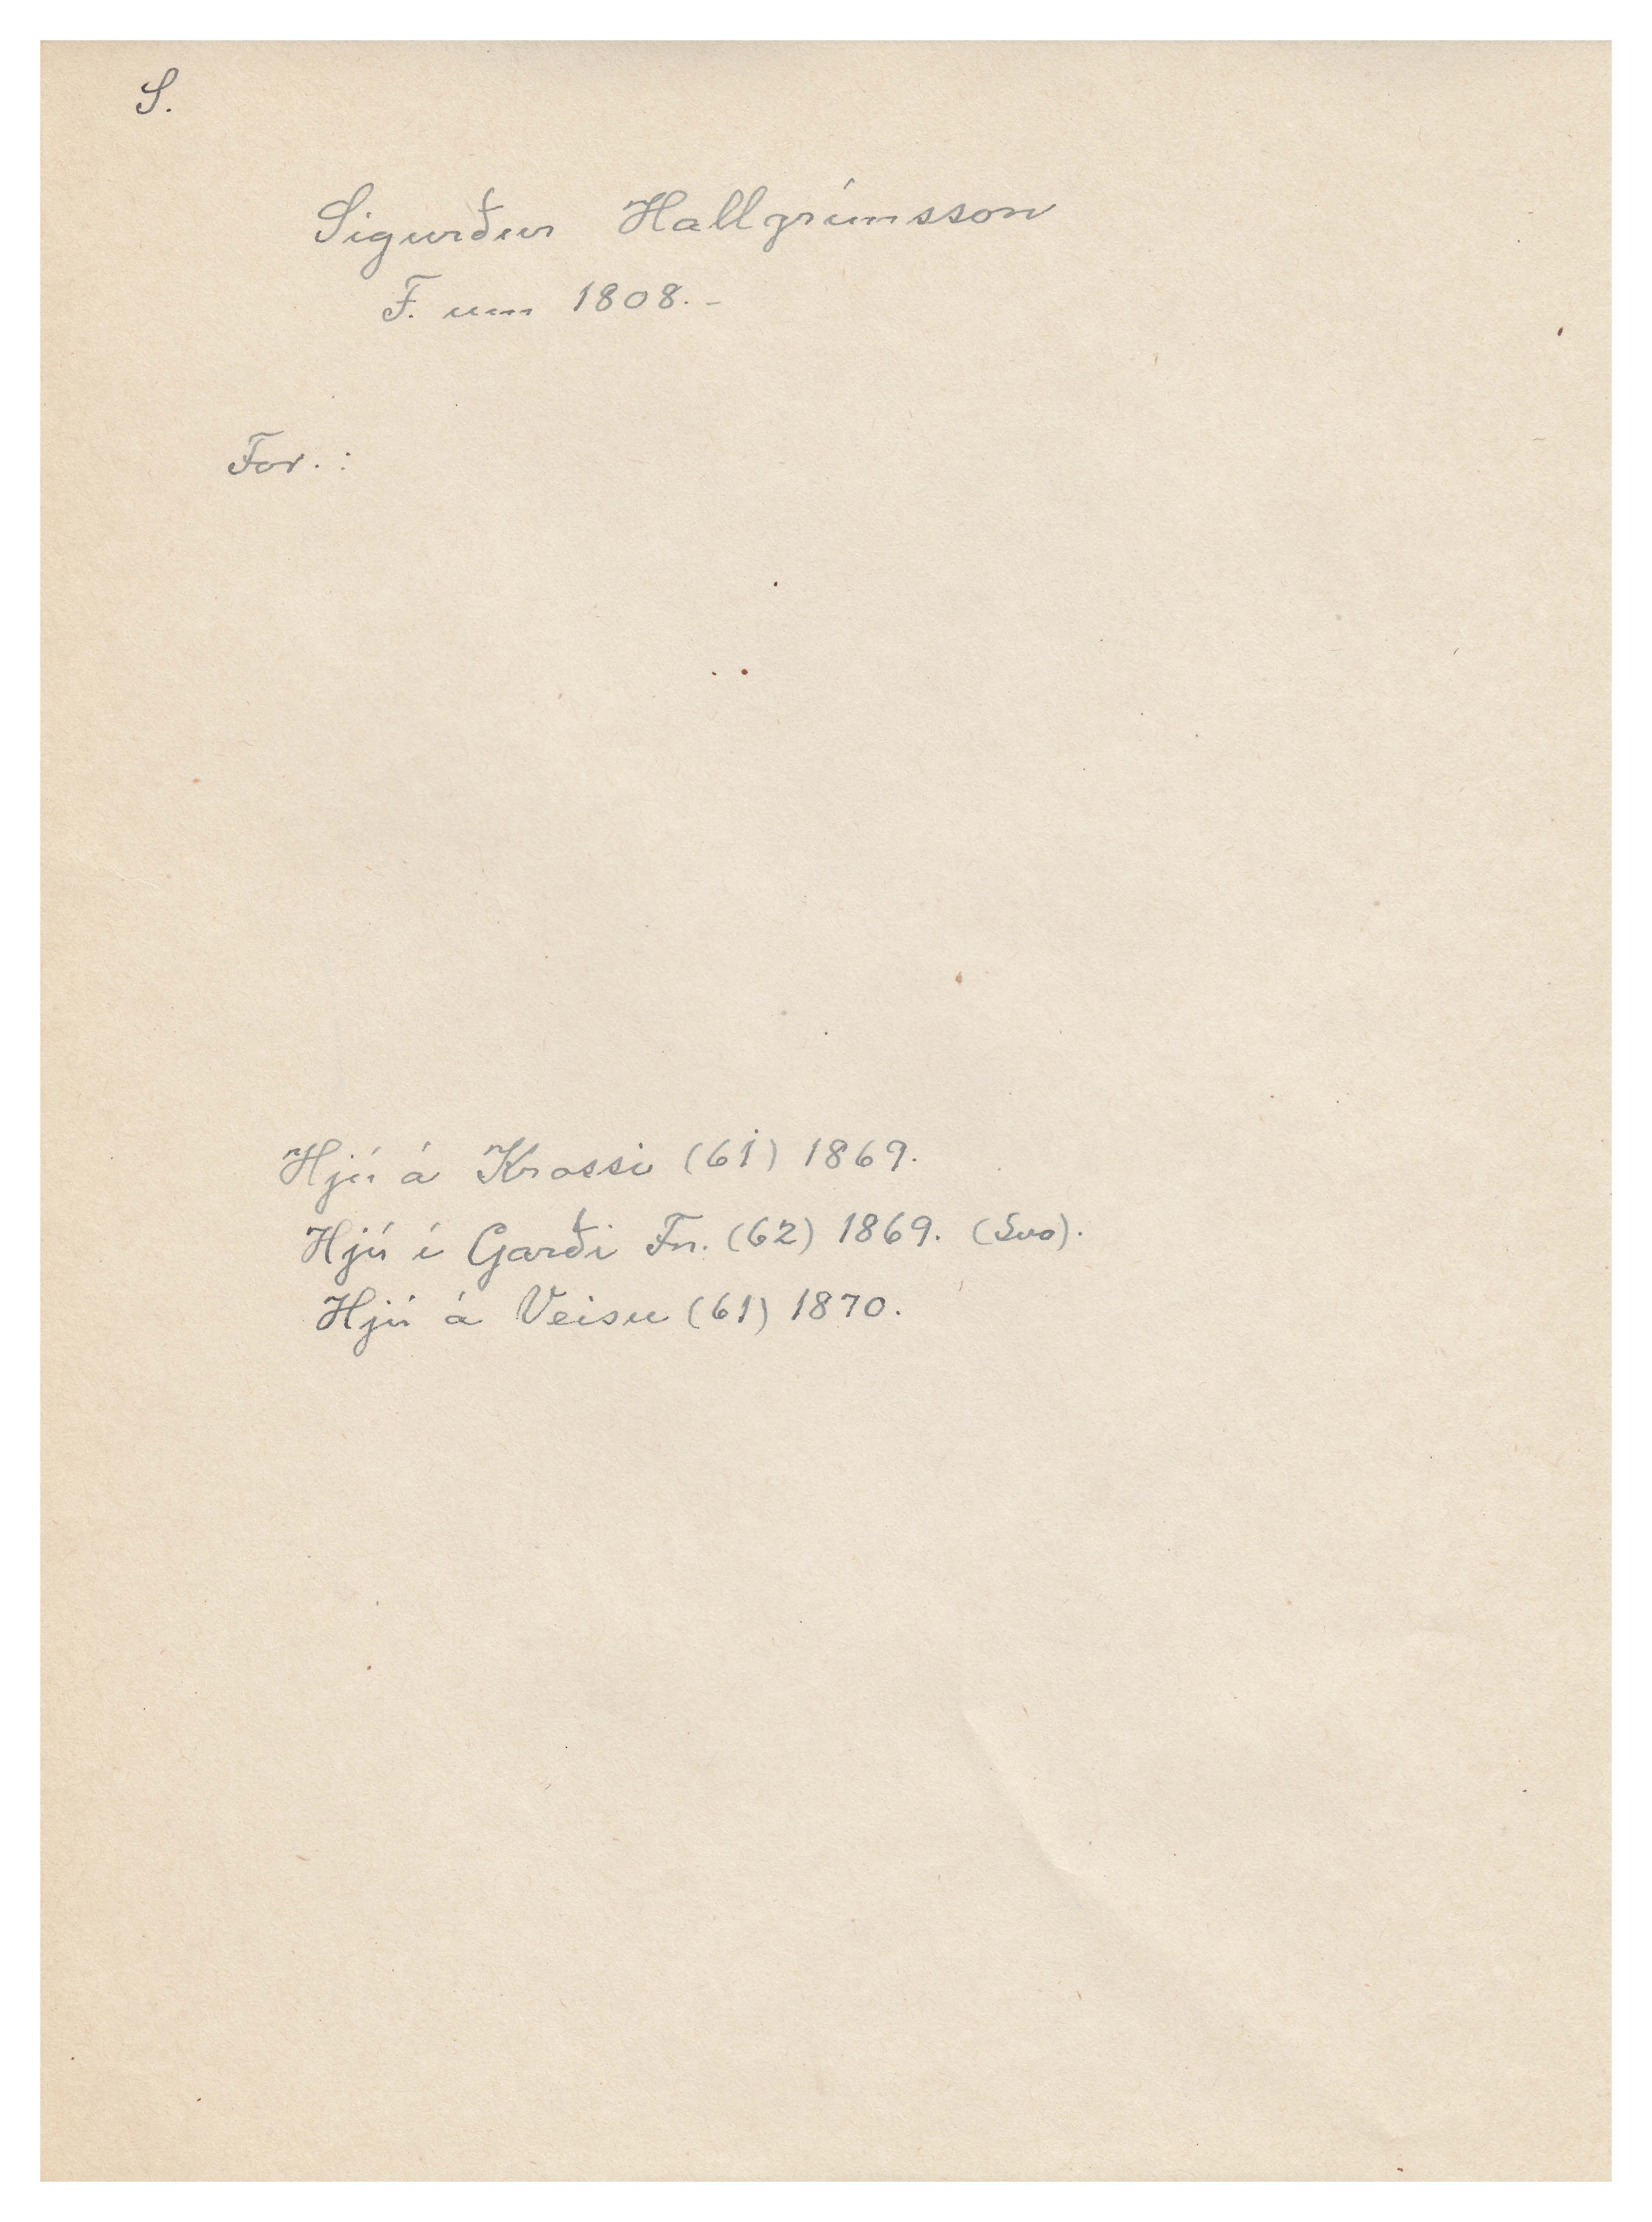 S.
Sigurður Hallgrímsson
F. um 1808.-
For. :
Hjú á Krossi (61) 1869.
Hjú í Garði Fn. (62) 1869. (Svo).
Hjú á Veisu (61) 1870.